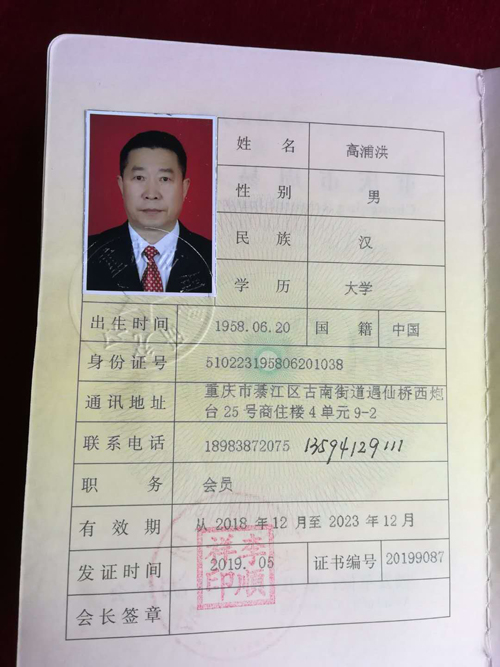 姓名 高浦洪
性别 男
民族 汉
学历 大学
出生时间 1958.06.20 国籍 中国
身份证号 510223195806201038
通讯地址 重庆市綦江区古南街道遇仙桥西炮
台25号商住楼4单元9-2
联系电话 18983872075 13594129111
职务 会员
有效期 从 2018 年 12 月至 2023 年 12 月
发证时间 2019. 05 证书编号 20199087
会长签章
李顺祥印